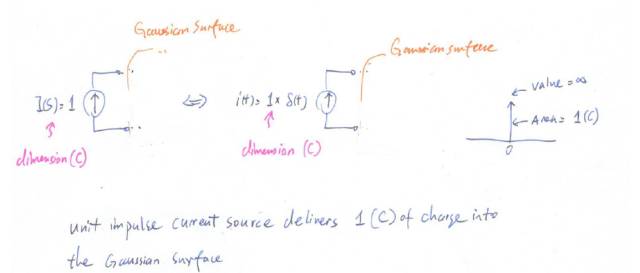 Gaussian Surface
Gaussian surface
I(s)= 1
⇔
i(t)= 1 x δ(t)
value = ∞
Area = 1 (C)
0
dimension (C)
dimension (C)
unit impulse current source delivers 1 (C) of charge into
the Gaussian Surface